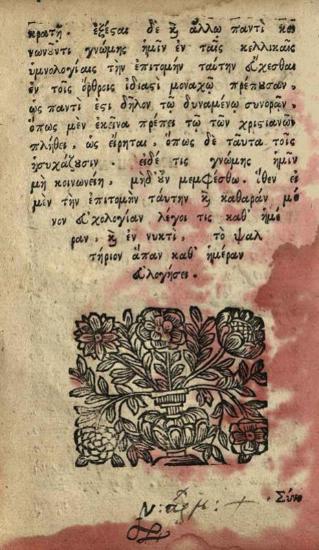 κρατῇ. ἐξέσαι δὲ ϗ ἄλλῳ παντὶ κοι
νωνοῦντι γνώμης ἡμῖν ἐν ταῖς κελλικαῖς
ὑμνολογίαις τὴν ἐπιτομὴν ταύτην εὔχεσθαι
ἐν τοῖς ὄρθροις ἰδίασὶ μοναχῷ πρέπουσαν,
ὡς παντί ἐστι δῆλον τῷ δυναμένῳ συνορᾷν,
ὅπως μὲν ἐκεῖνα πρέπει τῷ τῶν χριστιανῶν
πλήθει, ὡς εἴρηται, ὅπως δὲ ταῦτα τοῖς
ἡσυχάζουσιν. εἰδέ τις γνώμης ἡμῖν
μὴ κοινωνείη, μηδ' οὖν μεμφέσθω. ὅθεν εἰ
μὲν τὴν ἐπιτομὴν ταύτην ϗ καθαρὰν μό
νον εὐχολογίαν λέγοι τις καθ' ἡμέ
ραν, ϗ ἐν νυκτὶ, τὸ ψαλ
τήριον ἅπαν καθ' ἡμέραν
εὐλογήσει.
Σύν